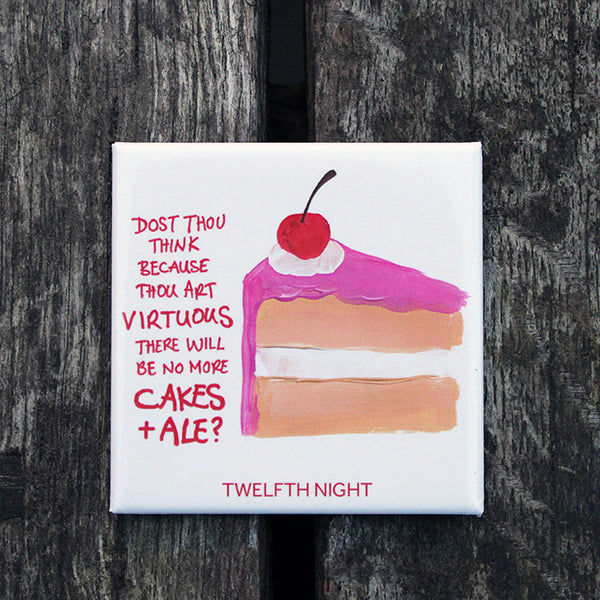 DOST THOU
THINK
BECAUSE
THOU ART
VIRTUOUS
THERE WILL
BE NO MORE
CAKES
+ ALE?
TWELFTH NIGHT